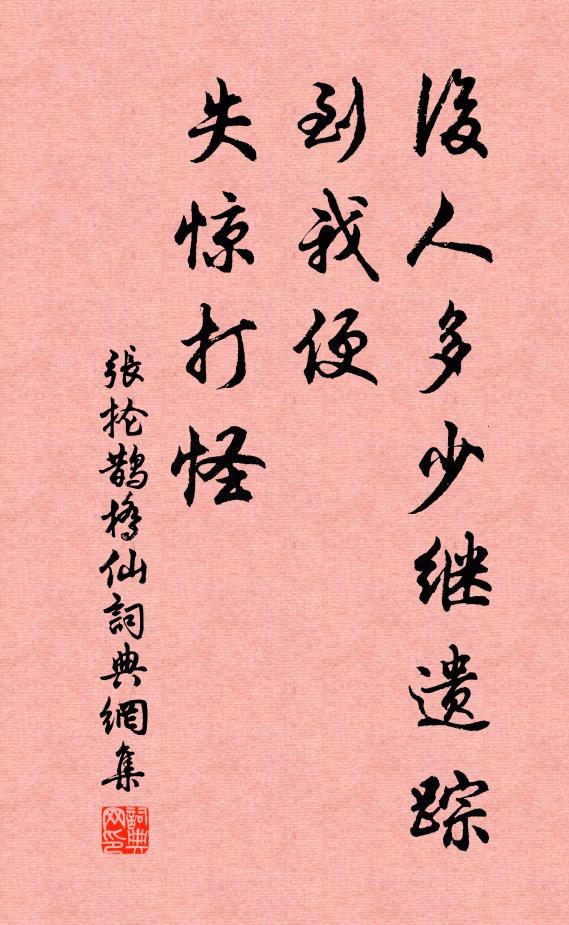 後人多少继遗踪
到我便
失惊打怪
張抡鹊橋仙詞典網集
詞典网印